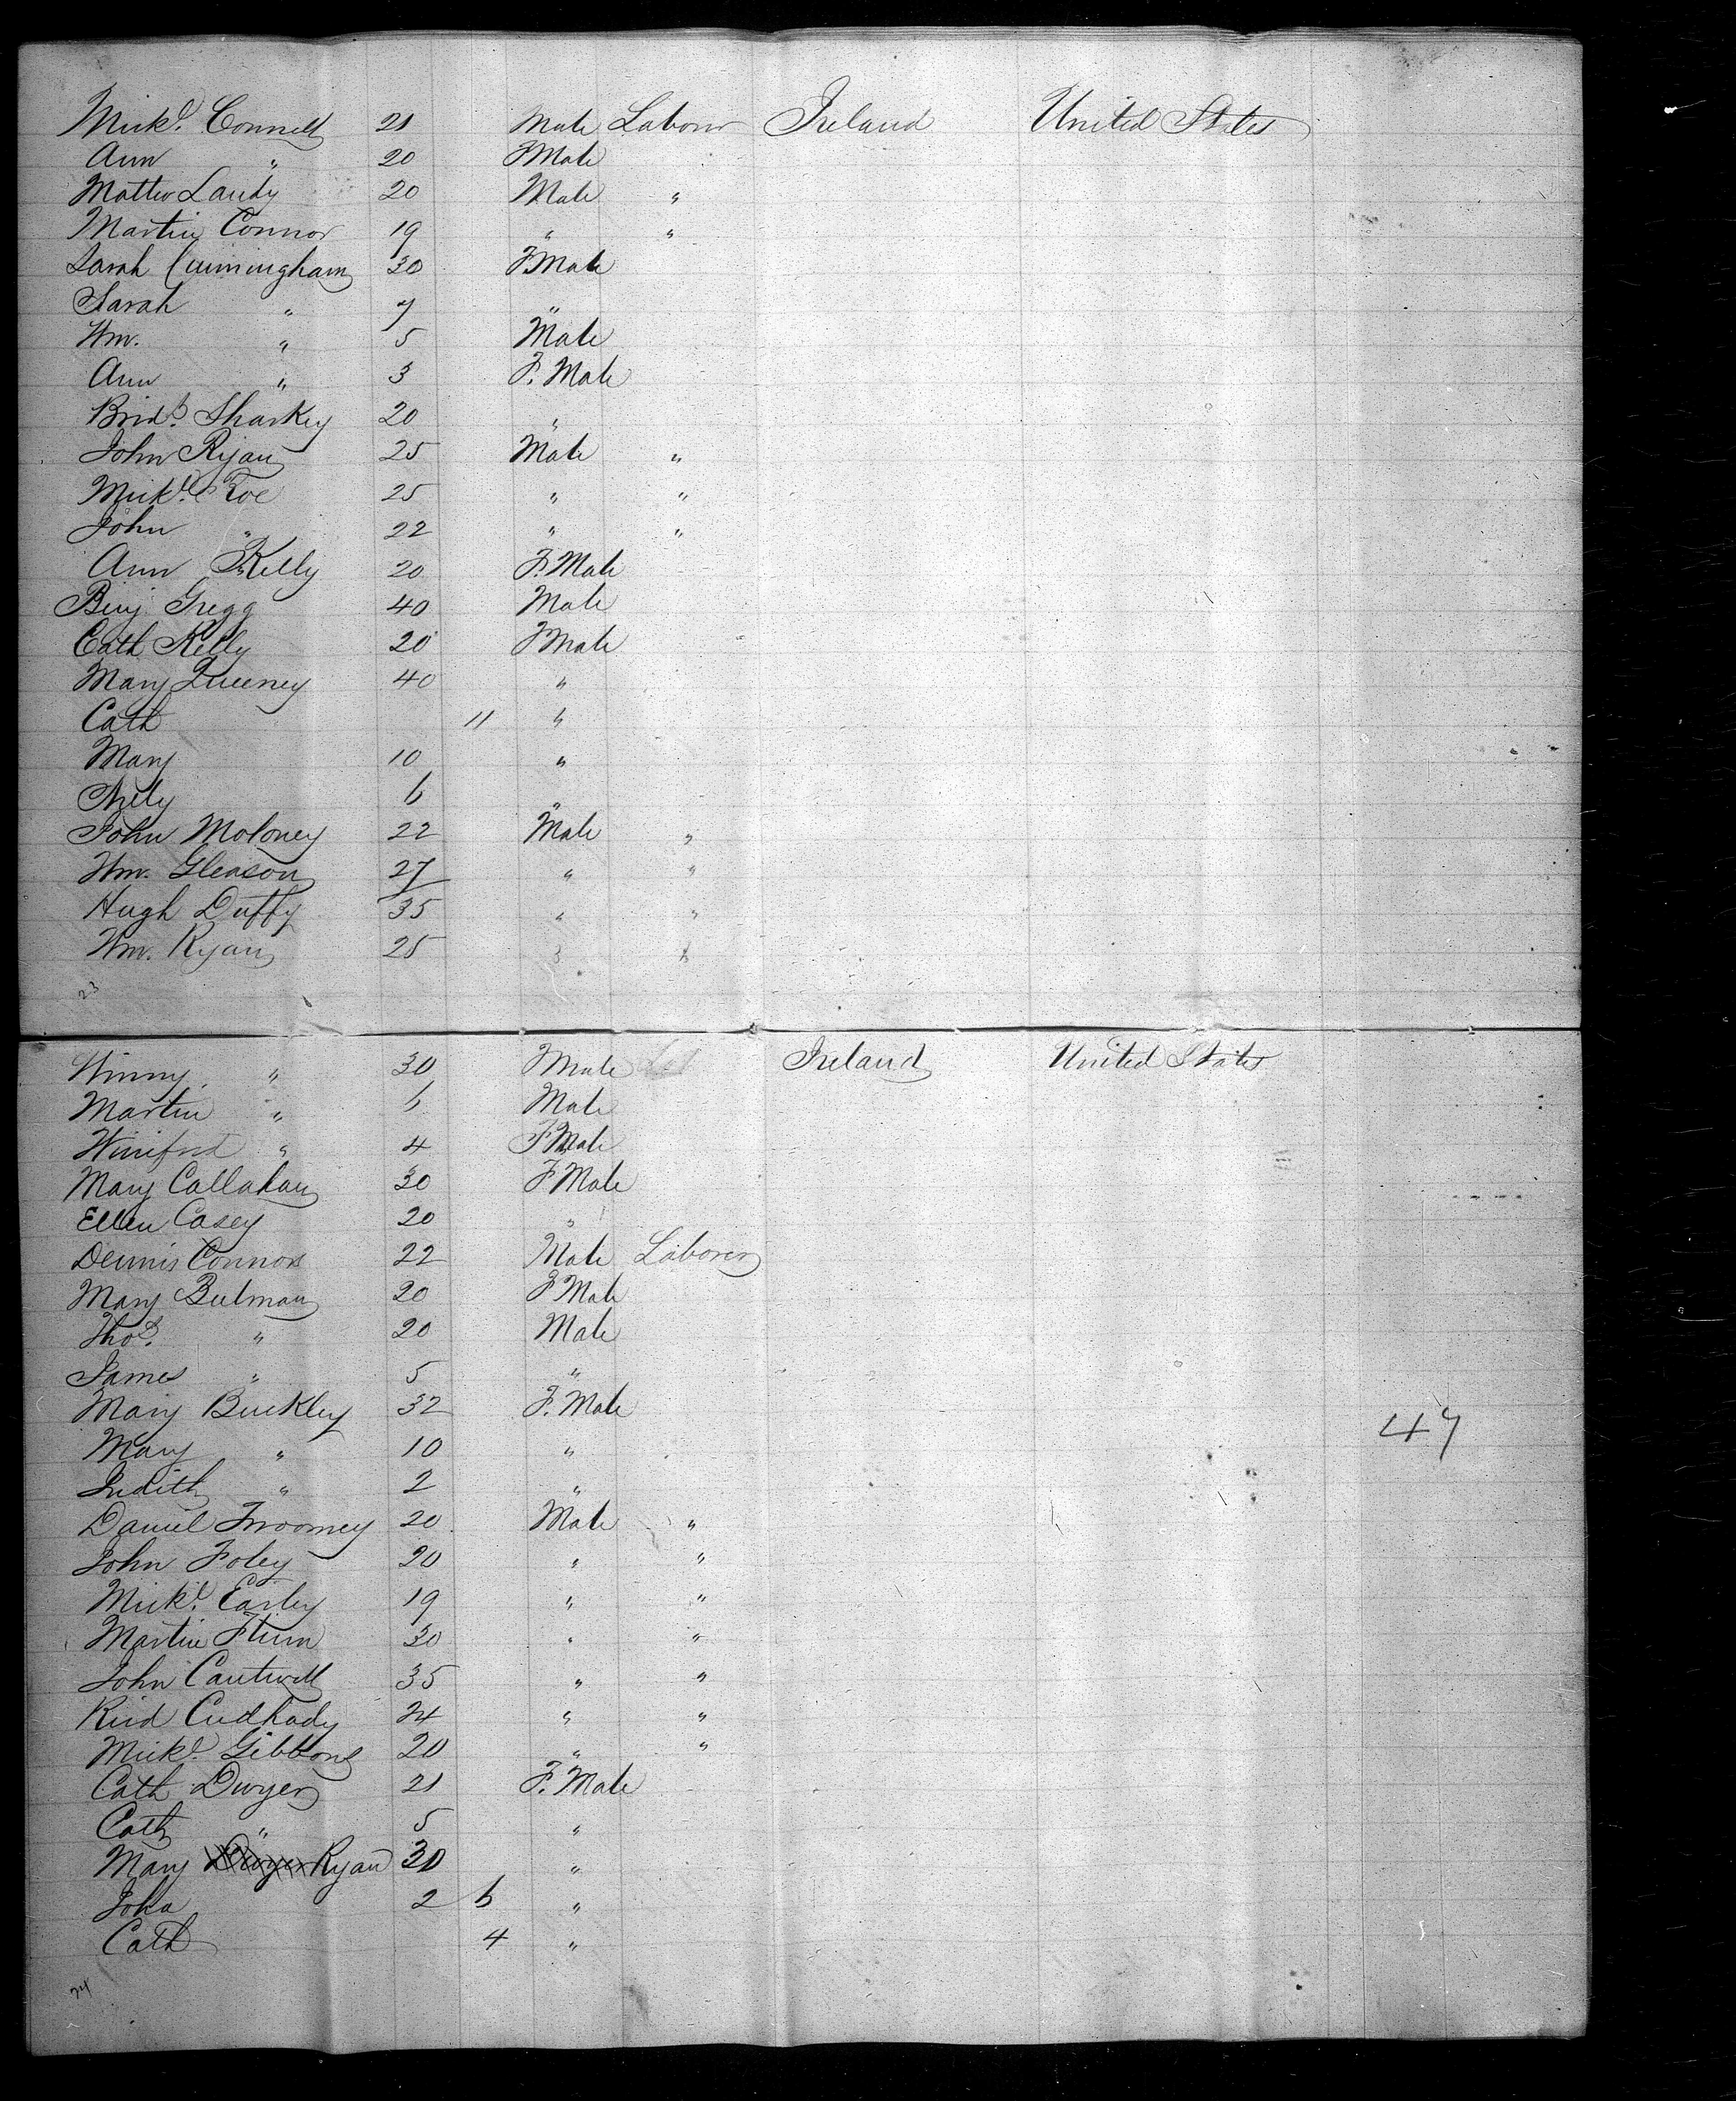 Mick.l Connell 21 Male Laborer Ireland United States
Ann " 20 F Male
Matter Landy 20 Male "
Martin Connor 19 " "
Sarah Cunningham 30 F. Male
Sarah " 7 "
Wm. " 5 Male
Ann " 3 F. Male
Brid.t Sharkey 20 "
John Ryan 25 Male "
Mick.l Roe 25 " "
John " 22 " "
Ann Kelly 20 F. Male
Benj Gregg 40 Male
Cath Kelly 20 F Male
Mary Queeney 40 "
Cath 11 "
Mary 10 "
6 "
John Moloney 22 Male "
Wm. Gleason 27 " "
Hugh Duffy 35 " "
Wm. Ryan 25 " "
23
Winny " 30 F Male Ireland United States
Martin " 6 Male
Winifred " 4 F Male
Mary Callahan 30 F Male
Ellen Casey 20 "
Dennis Connors 22 Male Laborer
Mary Bulman 20 F Male
Tho.s " 20 Male
James " 5 "
Mary Buckley 32 F. Male
47
Mary " 10 "
Judith " 2 "
Daniel Twoomey 20 Male "
John Foley 20 " "
Mick.l Earley 19 " "
Martin Flinn 30 " "
John Cantwell 35 " "
Cudhady 24 " "
Mick.l Gibbons 20 " "
Cath Dwyer 21 F. Male
Cath " 5 "
Mary Dwyer Ryan 30 "
2 6 "
Cath 4 "
24